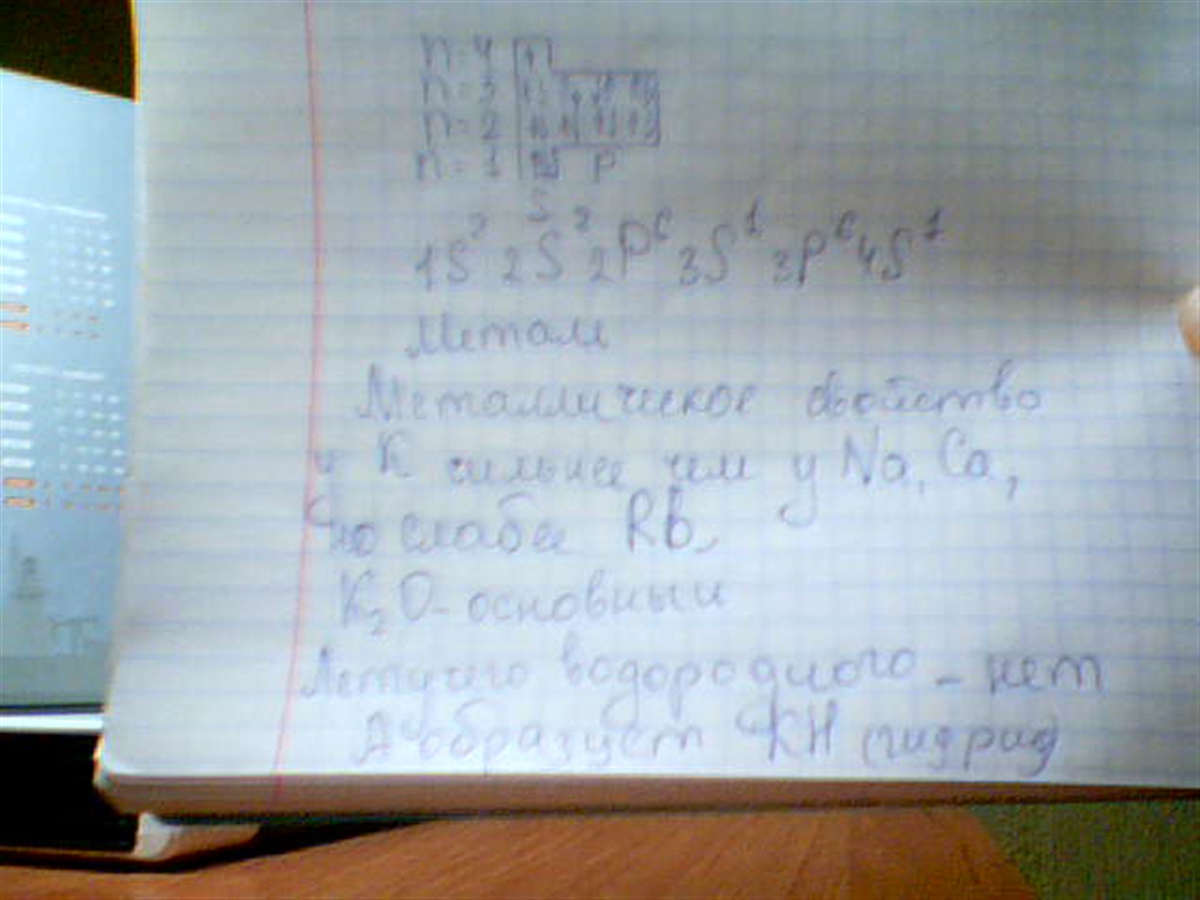 n=4
n=3
n=2
n=1 P
S
1S² 2S² 2P⁶ 3S¹ 3P⁶ 4S¹
Метал
Металлическое свойство
у К сильнее чем у Na, Ca,
но слабее Rb.
K₂O-основный
Летучего водородного - нет
А образует KH (гидрид